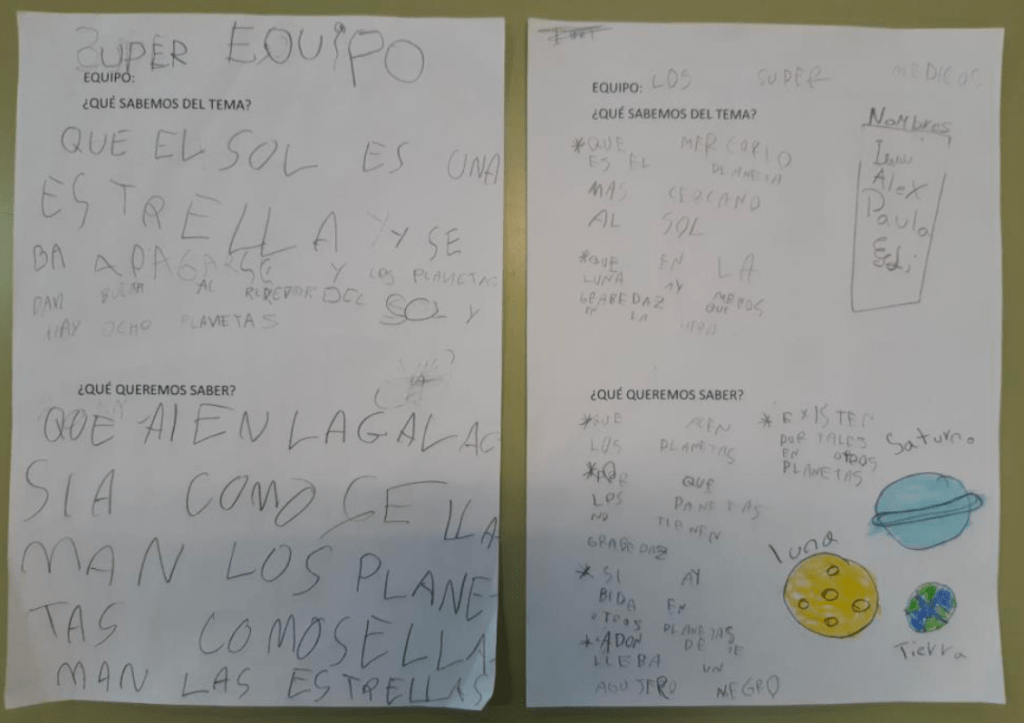 SUPER EQUIPO
EQUIPO:
¿QUÉ SABEMOS DEL TEMA?
QUE EL SOL ES UNA
ESTRELLA Y Y SE
BA APAGARSE Y LOS PLANETAS
DAN BUELTA AL REDEDOR DEL SOL Y
HAY OCHO PLANETAS
¿QUÉ QUEREMOS SABER?
QUE AI EN LA GALAC
SIA COMO SE LLA
MAN LOS PLANE-
TAS COMOSELLA-
MAN LAS ESTRELLAS
EQUIPO: LOS SUPER MEDICOS
¿QUÉ SABEMOS DEL TEMA?
*QUE MERCORIO
ES EL PLANETA
MAS CERCANO
AL SOL
*QUE EN LA
LUNA AY MENOS
GRABEDAZ QUE
EN LA
Nombres
Alex
Paula
Edi
¿QUÉ QUEREMOS SABER?
*QUE ACEN
LOS PLANETAS
*POR QUE
LOS PANETAS
NO TIENEN
GRABEDAZ
*SI AY
BIDA EN
OTROS PLANETAS
*ADONDE TE
LLEBA UN
AGUJERO NEGRO
*EXISTEN
PORTALES
EN OTROS
PLANETAS
Saturno
luna
Tierra